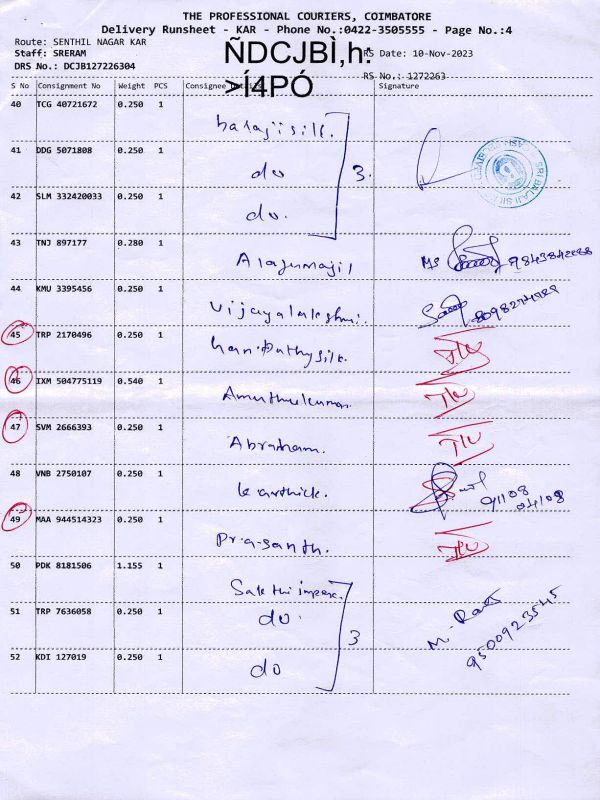 THE PROFESSIONAL COURIERS, COIMBATORE
Delivery Runsheet - KAR - Phone No.:0422-3505555 - Page No.:4
Route: SENTHIL NAGAR KAR
Staff: SRERAM
ÑDCJBÌ,h:
>Í4PÓ
RS Date: 10-Nov-2023
DRS No.: DCJB127226304
RS No.: 1272263
S No Consignment No Weight PCS Consignee Details Signature
40 TCG 40721672 0.250 1 balaji silk.
41 DDG 5071808 0.250 1 do 3.
SRI BALAJI SILK
42 SLM 332420033 0.250 1 do.
43 TNJ 897177 0.280 1
44 KMU 3395456 0.250 1 Vijayalakshmi.
45 TRP 2170496 0.250 1
46 IXM 504775119 0.540 1 Amuthukumar.
47 SVM 2666393 0.250 1 Abraham.
48 VNB 2750107 0.250 1 karthick.
49 MAA 944514323 0.250 1 Prasanth.
50 PDK 8181506 1.155 1 Sakthi impex.
51 TRP 7636058 0.250 1 do. 3 9500923545
52 KDI 127019 0.250 1 do